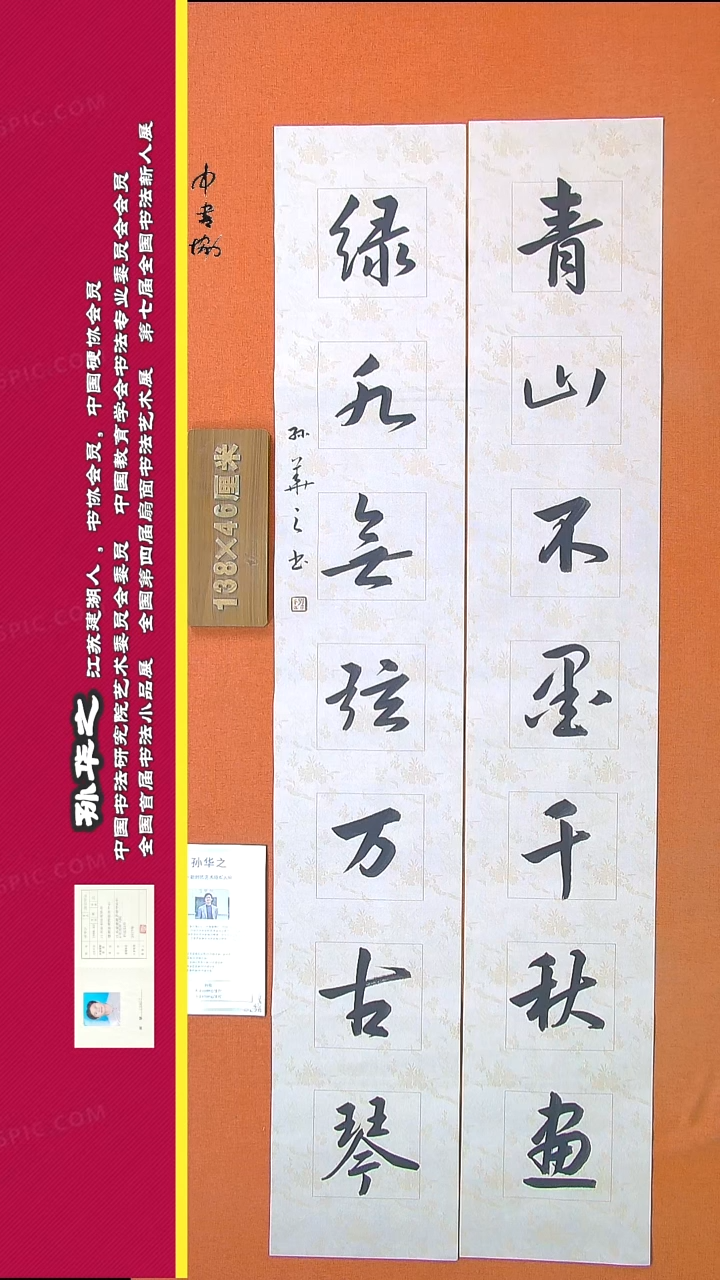 青山不墨千秋画
绿水无弦万古琴
孙华之书
138×46厘米
孙华之
孙华之 江苏建湖人，书协会员，中国硬协会员
中国书法研究院艺术委员会委员 中国教育学会书法专业委员会会员
全国首届书法小品展 全国第四届扇面书法艺术展 第七届全国书法新人展